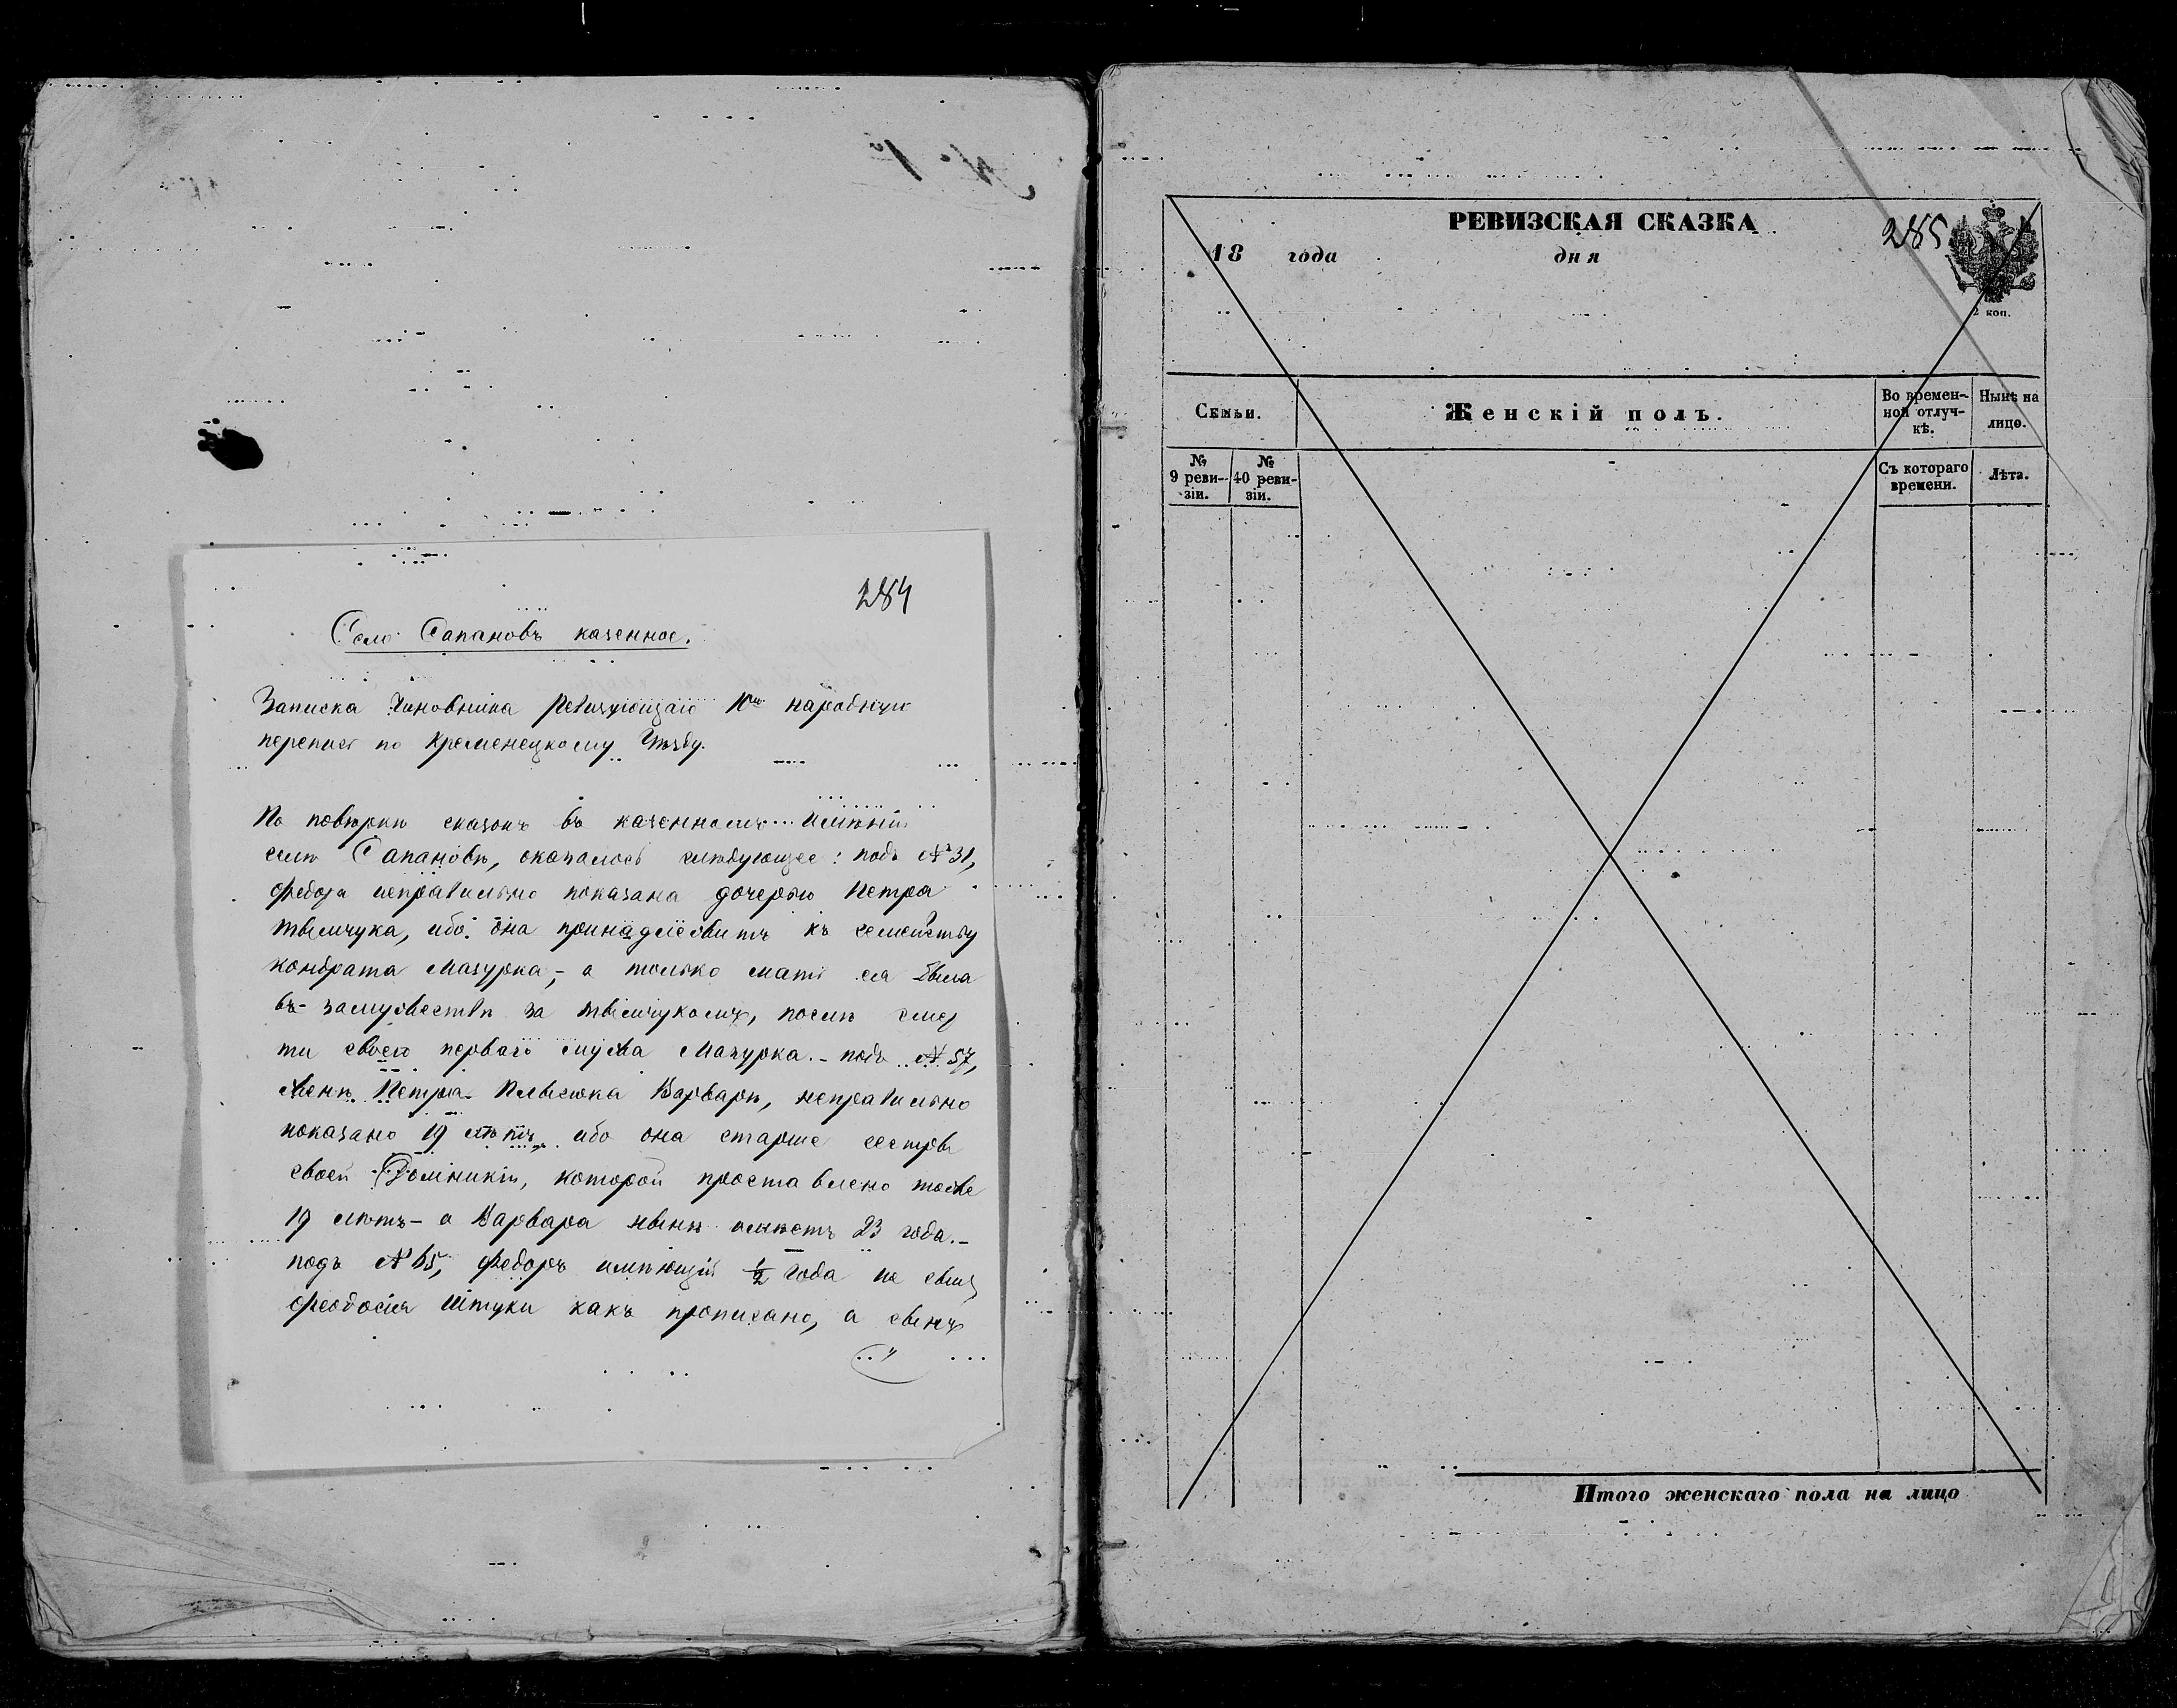 № 1й
284
Село Сапановъ казенное.
Записка Чиновника Ревизующаго 10ю народную
перепись по Кременецкому Уѣзду.
По повѣркѣ сказокъ въ казенномъ имѣніи
селѣ Сапановѣ, оказалось слѣдующее: подъ № 31,
Федося неправильно показана дочерью Петра
Тымчука, ибо она принадлежитъ къ семейству
Кондрата Мазурка, - а только мать ея была
въ замужествѣ за Тымчукомъ, послѣ смер
ти своего перваго мужа Мазурка. - подъ № 57,
женѣ Петра Варварѣ, неправильно
показано 19 лѣтъ, ибо она старше сестры
своей Домникіи, которой проставлено тоже
19 лѣтъ - а Варвара нынѣ имѣетъ 23 года. -
подъ № 65, Федоръ имѣющій 1/2 года не сынъ
Феодосія Штуки какъ прописано, а сынъ
РЕВИЗСКАЯ СКАЗКА
285
18 года дня
2 коп.
Семьи.
Женскій полъ.
Во времен-
ной отлуч-
кѣ.
Нынѣ на
лицо.
№
9 реви-
зіи.
№
10 реви-
зіи.
Съ котораго
времени.
Лѣта.
Итого женскаго пола на лицо